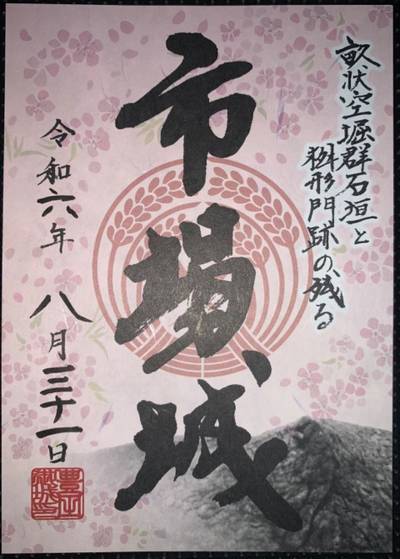 畝状空堀群石垣と
桝形門跡の残る
市場城
令和六年
八月三十一日